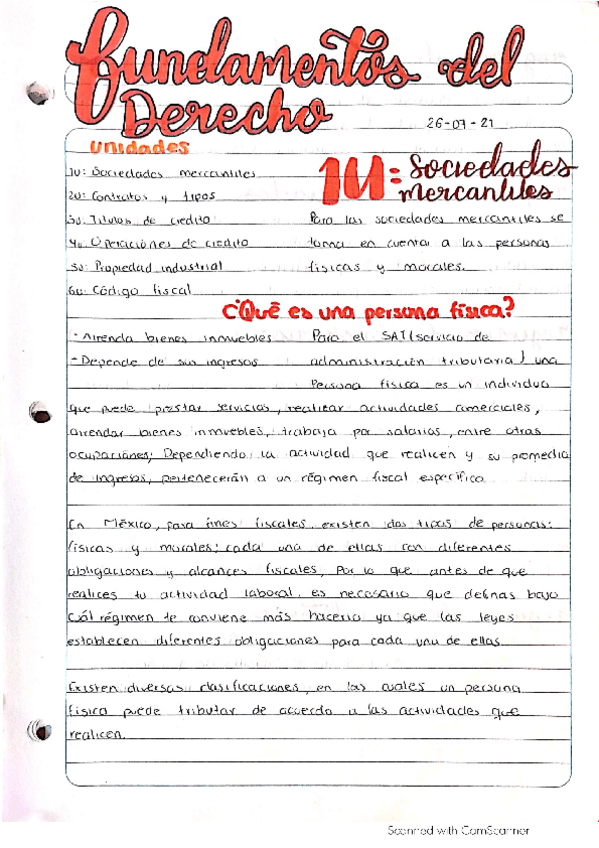 Fundamentos del
Derecho
26-07-21
Unidades
1U: Sociedades mercantiles
2U: Contratos y tipos
3U: Titulos de credito
4U: Operaciones de credito
5U: Propiedad industrial
6U: Código fiscal
1U: Sociedades
mercantiles
Para las sociedades mercantiles se
toma en cuenta a las personas
fisicas y morales.
¿Qué es una persona física?
- Arrenda bienes inmuebles
- Depende de sus ingresos
Para el SAT (servicio de
administración tributaria) una
Persona fisica es un individuo
que puede prestar servicios, realizar actividades comerciales,
arrendar bienes inmuebles, trabaja por salarios, entre otras
ocupaciones; Dependiendo la actividad que realicen y su promedio
de ingresos, pertenecerán a un régimen fiscal especifico
En México, para fines fiscales, existen dos tipos de personas:
físicas y morales; cada una de ellas con diferentes
obligaciones y alcances fiscales, Por lo que antes de que
realices tu actividad laboral, es necesario que definas bajo
cuál régimen te conviene más hacerlo ya que las leyes
establecen diferentes obligaciones para cada una de ellas
Existen diversas clasificaciones, en las cuales un persona
física puede tributar de acuerdo a las actividades que
realicen.
Scanned with CamScanner